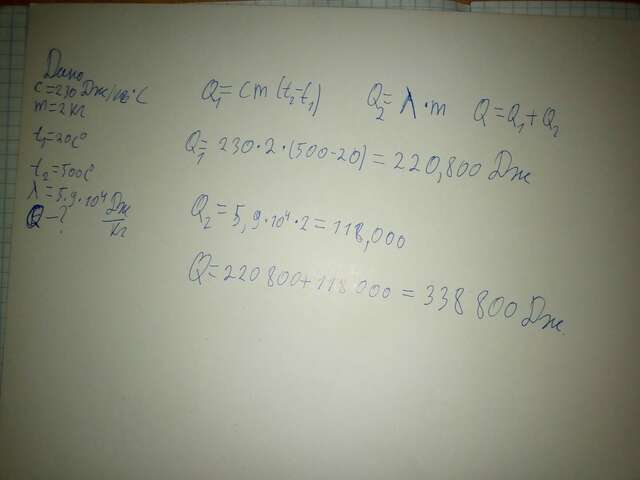 Дано
c=230 Дж/кг°C
m=2кг
t₁=20C°
t₂=500C°
λ=5,9·10⁴ Дж/кг
Q-?
Q₁=cm(t₂-t₁) Q₂=λ·m Q=Q₁+Q₂
Q₁=230·2·(500-20)=220,800 Дж
Q₂=5,9·10⁴·2=118,000
Q=220 800+118 000=338 800 Дж.